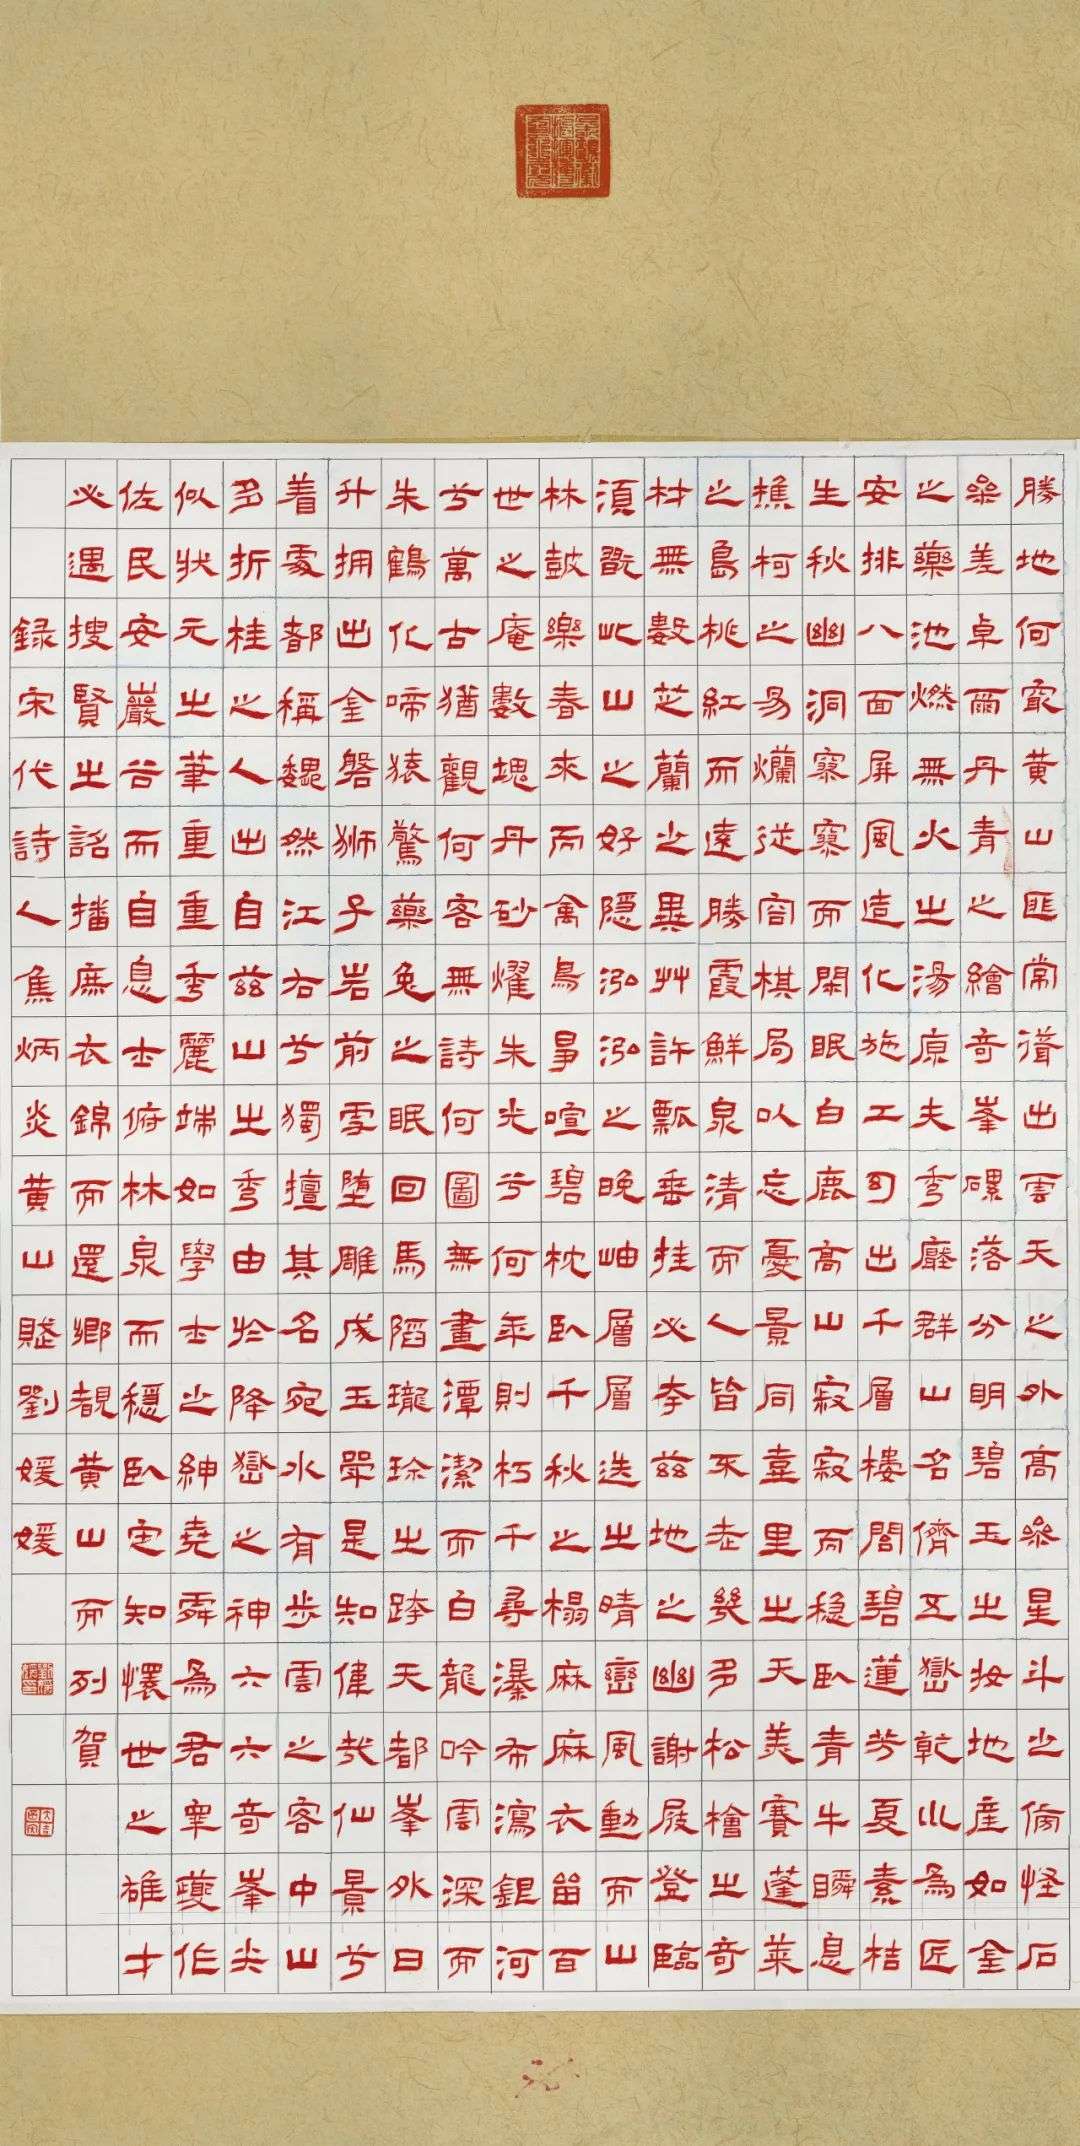 勝地何㝡黃山匪常出雲天之外高參星斗之傍怪石
參差卓爾丹青之繪奇峯磥落分明碧玉之妝地產如金
之藥池燃無火之湯原夫秀壓群山名儕五嶽乾巛為匠
安排八面屏風造化施工幻出千層樓閣碧蓮芳夏素桔
生秋幽洞寥寥而閑眠白鹿高山寂寂而穩臥青牛瞬息
樵柯之易爛從容棋局以忘憂景同壺里之天美賽蓬萊
之島桃紅而遠勝霞鮮泉清而人皆不老幾多松檜之奇
材無數芝蘭之異艸許瓢垂挂必李茲地之幽謝屐登臨
須翫此山之好隱泓泓之晚岫層層迭之晴巒風動而山
林鼓樂春來而禽鳥爭喧碧枕臥千秋之榻麻麻衣留百
世之庵數塊丹砂燿朱光兮何年則朽千尋瀑布瀉銀河
兮萬古猶觀何客無詩何圖無畫潭潔而白龍吟雲深而
朱鶴化啼猿驚藥兔之眠回馬蹈瓏玲之跨天都峯外日
升拥出金磐狮子岩前雪堕雕成玉斝是知偉哉仙景兮
着處都稱巍然江右兮獨擅其名宛水有步雲之客中山
多折桂之人出自茲山之秀由於降嶽之神六六奇峯尖
似狀元之筆重重秀麗端如學士之紳堯舜為君皋夔作
佐民安巖谷而自息士俯林泉而穩臥定知懷世之雄才
必遇搜賢之詔播庶衣錦而還鄉覩黃山而列賀
錄宋代詩人焦炳炎黃山賦劉媛媛